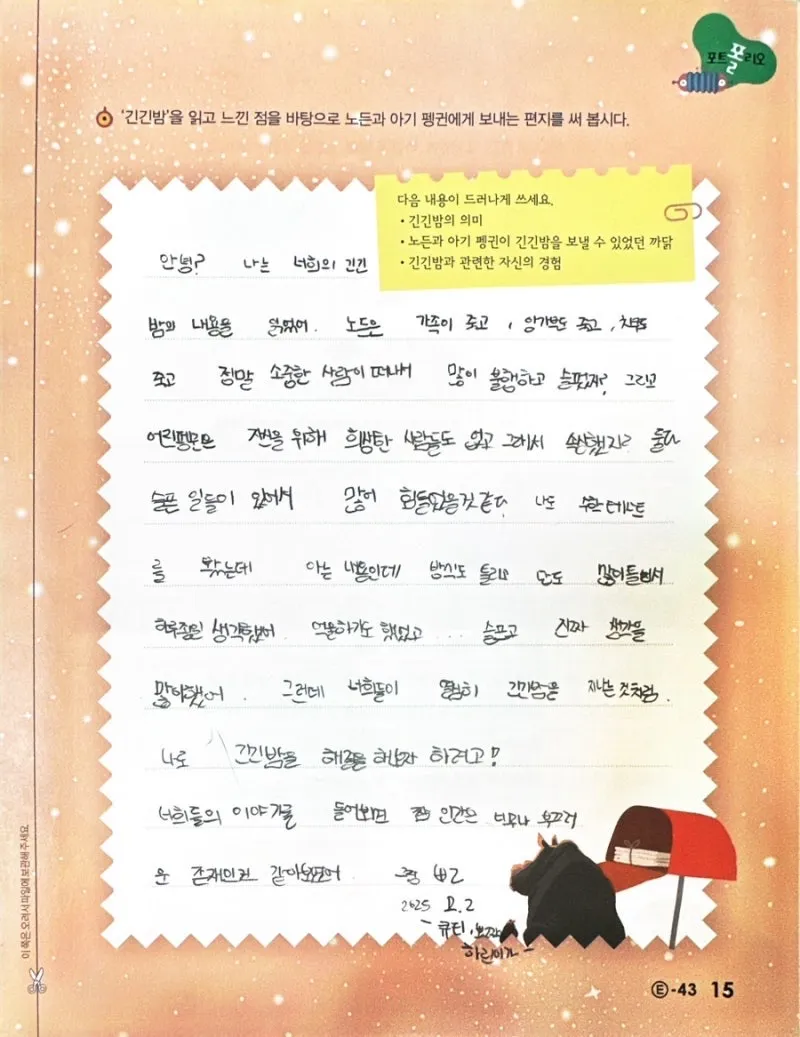 포트폴리오
'긴긴밤'을 읽고 느낀 점을 바탕으로 노든과 아기 펭귄에게 보내는 편지를 써 봅시다.
다음 내용이 드러나게 쓰세요.
• 긴긴밤의 의미
• 노든과 아기 펭귄이 긴긴밤을 보낼 수 있었던 까닭
• 긴긴밤과 관련한 자신의 경험
안녕? 나는 너희의 긴긴
밤의 내용을 읽었어. 노드은 가족이 죽고, 앙가부도 죽고, 치쿠도
죽고 정말 소중한 사람이 떠나서 많이 불행하고 슬펐지? 그리고
어린펭귄은 자신을 위해 희생한 사람들도 없고 그래서 속상했지? 둘다
슬픈 일들이 있어서 많이 힘들었을것 같다. 나도 수학 테스트
를 봤는데 아는 내용인데 방식도 틀리고 많이틀려서
하루종일 생각했어. 억울하기도 했었고... 슬프고 진짜 생각을
많이했어. 그런데 너희들이 열심히 긴긴밤을 지나는 것처럼.
나도 긴긴밤을 해결을 해보자 하려고!
너희들의 이야기를 들어보면 참 인간은 너무나 부끄러
운 존재인것 같아보였어.
2025 2.2
- 큐티,뽀짝
하린이가 -
이 쪽은 오려서 파일에 보관해 주세요.
Ⓔ-43 15